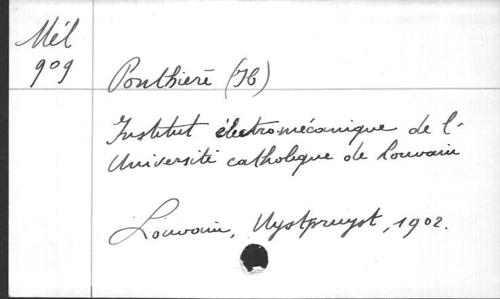 Mél
909
Ponthière (H)
Institut électromécanique de l'
Université catholique de Louvain
Louvain, Nystpruyst, 1902.